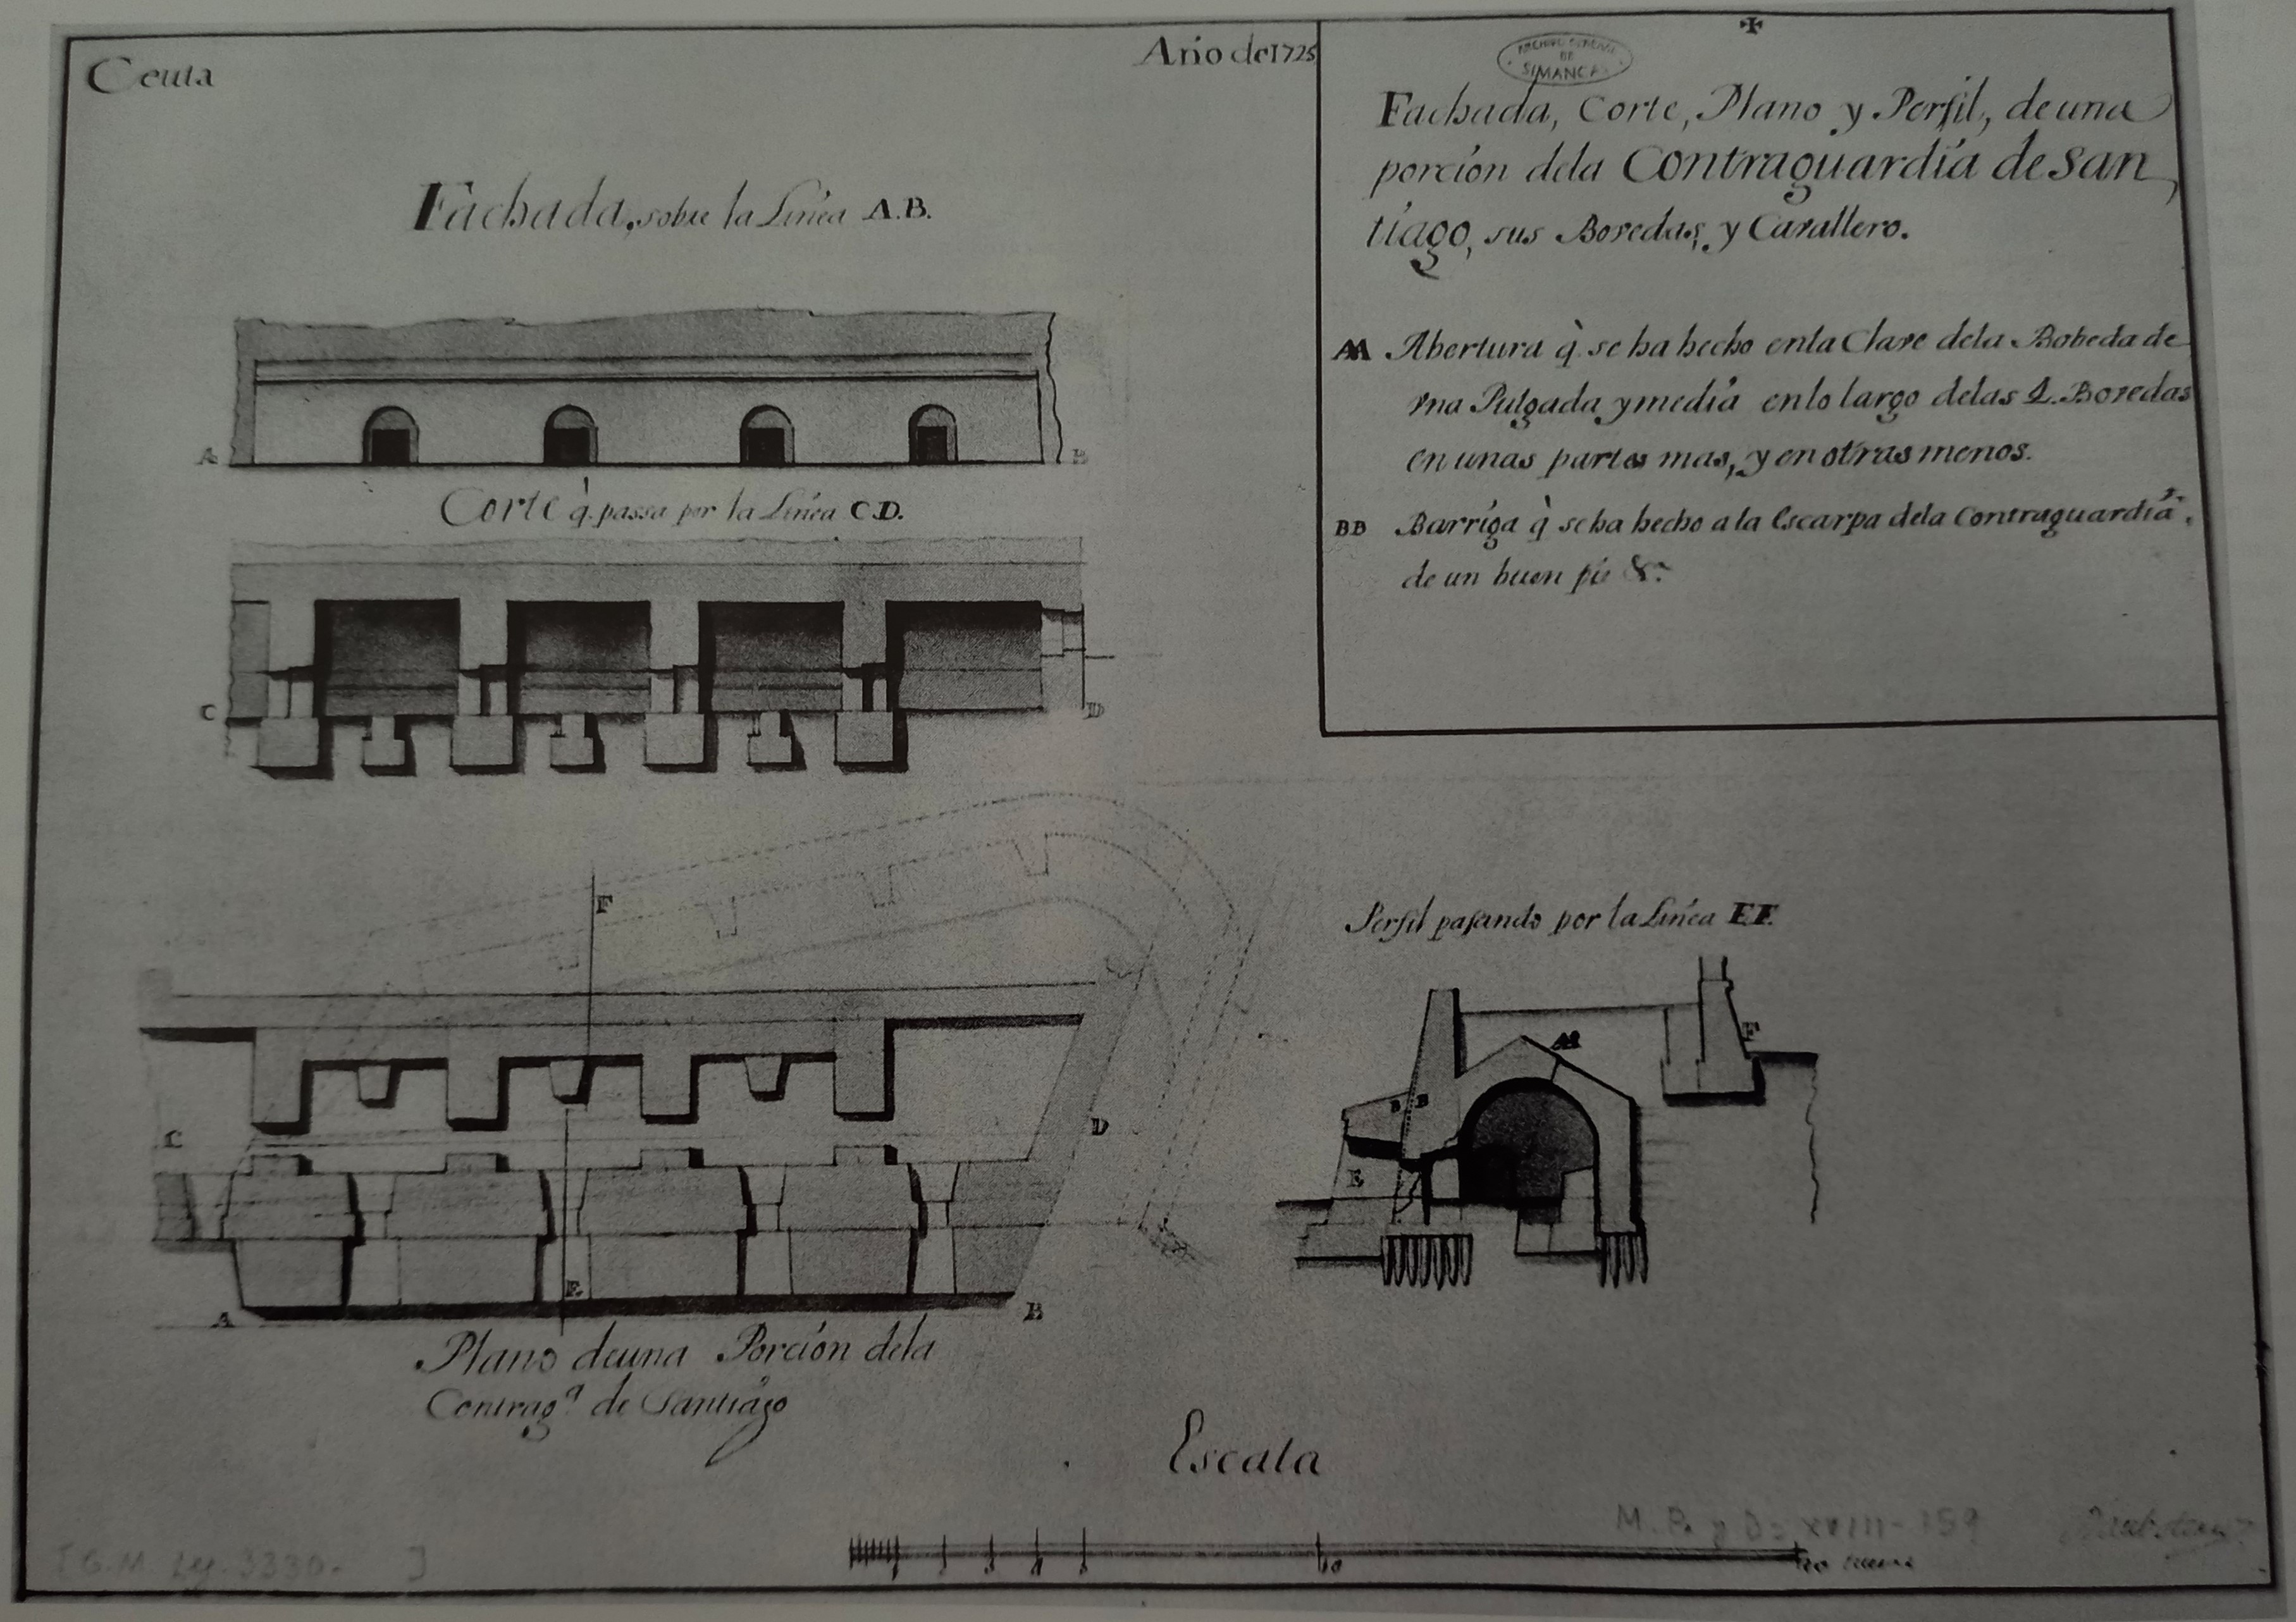 Ceuta
Año de 1725
ARCHIVO GENERAL
DE
SIMANCAS
Fachada, Corte, Plano y Perfil, de una
porción dela Contraguardia de San
tiago, sus Bovedas, y Cavallero.
AA Abertura q̀. se ha hecho enla Clave dela Bobeda de
vna Pulgada y media enlo largo delas 4. Bovedas
en unas partes mas, y en otras menos.
BB Barriga q̀ se ha hecho a la Escarpa dela Contraguardia,
de un buen pie &.ª
Fachada, sobre la Linea A.B.
A
B
Corte q̀. passa por la Linea C.D.
C
D
F
C
D
E
A
B
Plano deuna Porción dela
Contrag.ª de Santiago
Perfil pasando por la Linea E.F.
AA
F
B B
E
Escala
1
5
10
20
M. P. y D. XVIII-159
[G.M. Leg. 3330. ]